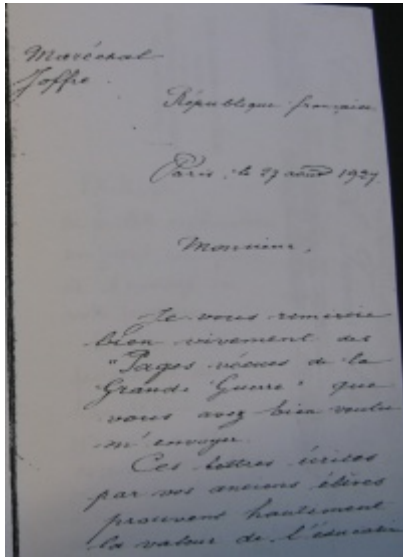 Maréchal
Joffre.
République française
Paris, le 27 août 1927.
Monsieur,
Je vous remercie
bien vivement des
"Pages vécues de la
Grande Guerre" que
vous avez bien voulu
m'envoyer.
Ces lettres écrites
par vos anciens élèves
prouvent hautement
la valeur de l'éducation